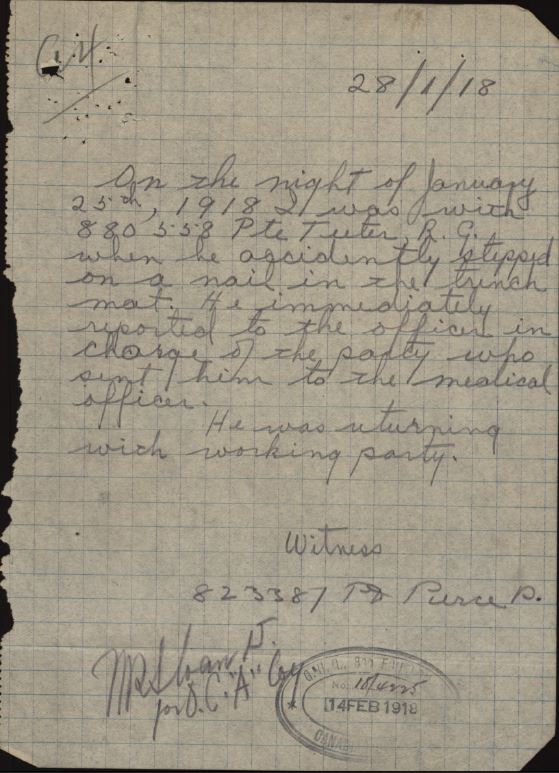 28/1/18
On the night of January
25th, 1918 I was with
880558 Pte Teeter, R. G.
when he accidently stepped
on a nail in the trench
mat. He immediately
reported to the officer in
charge of the party who
sent him to the medical
officer.
He was returning
with working party.
Witness
823381 Pte Pierce P.
Lt.
for O.C. "A" Coy
14 FEB 1918